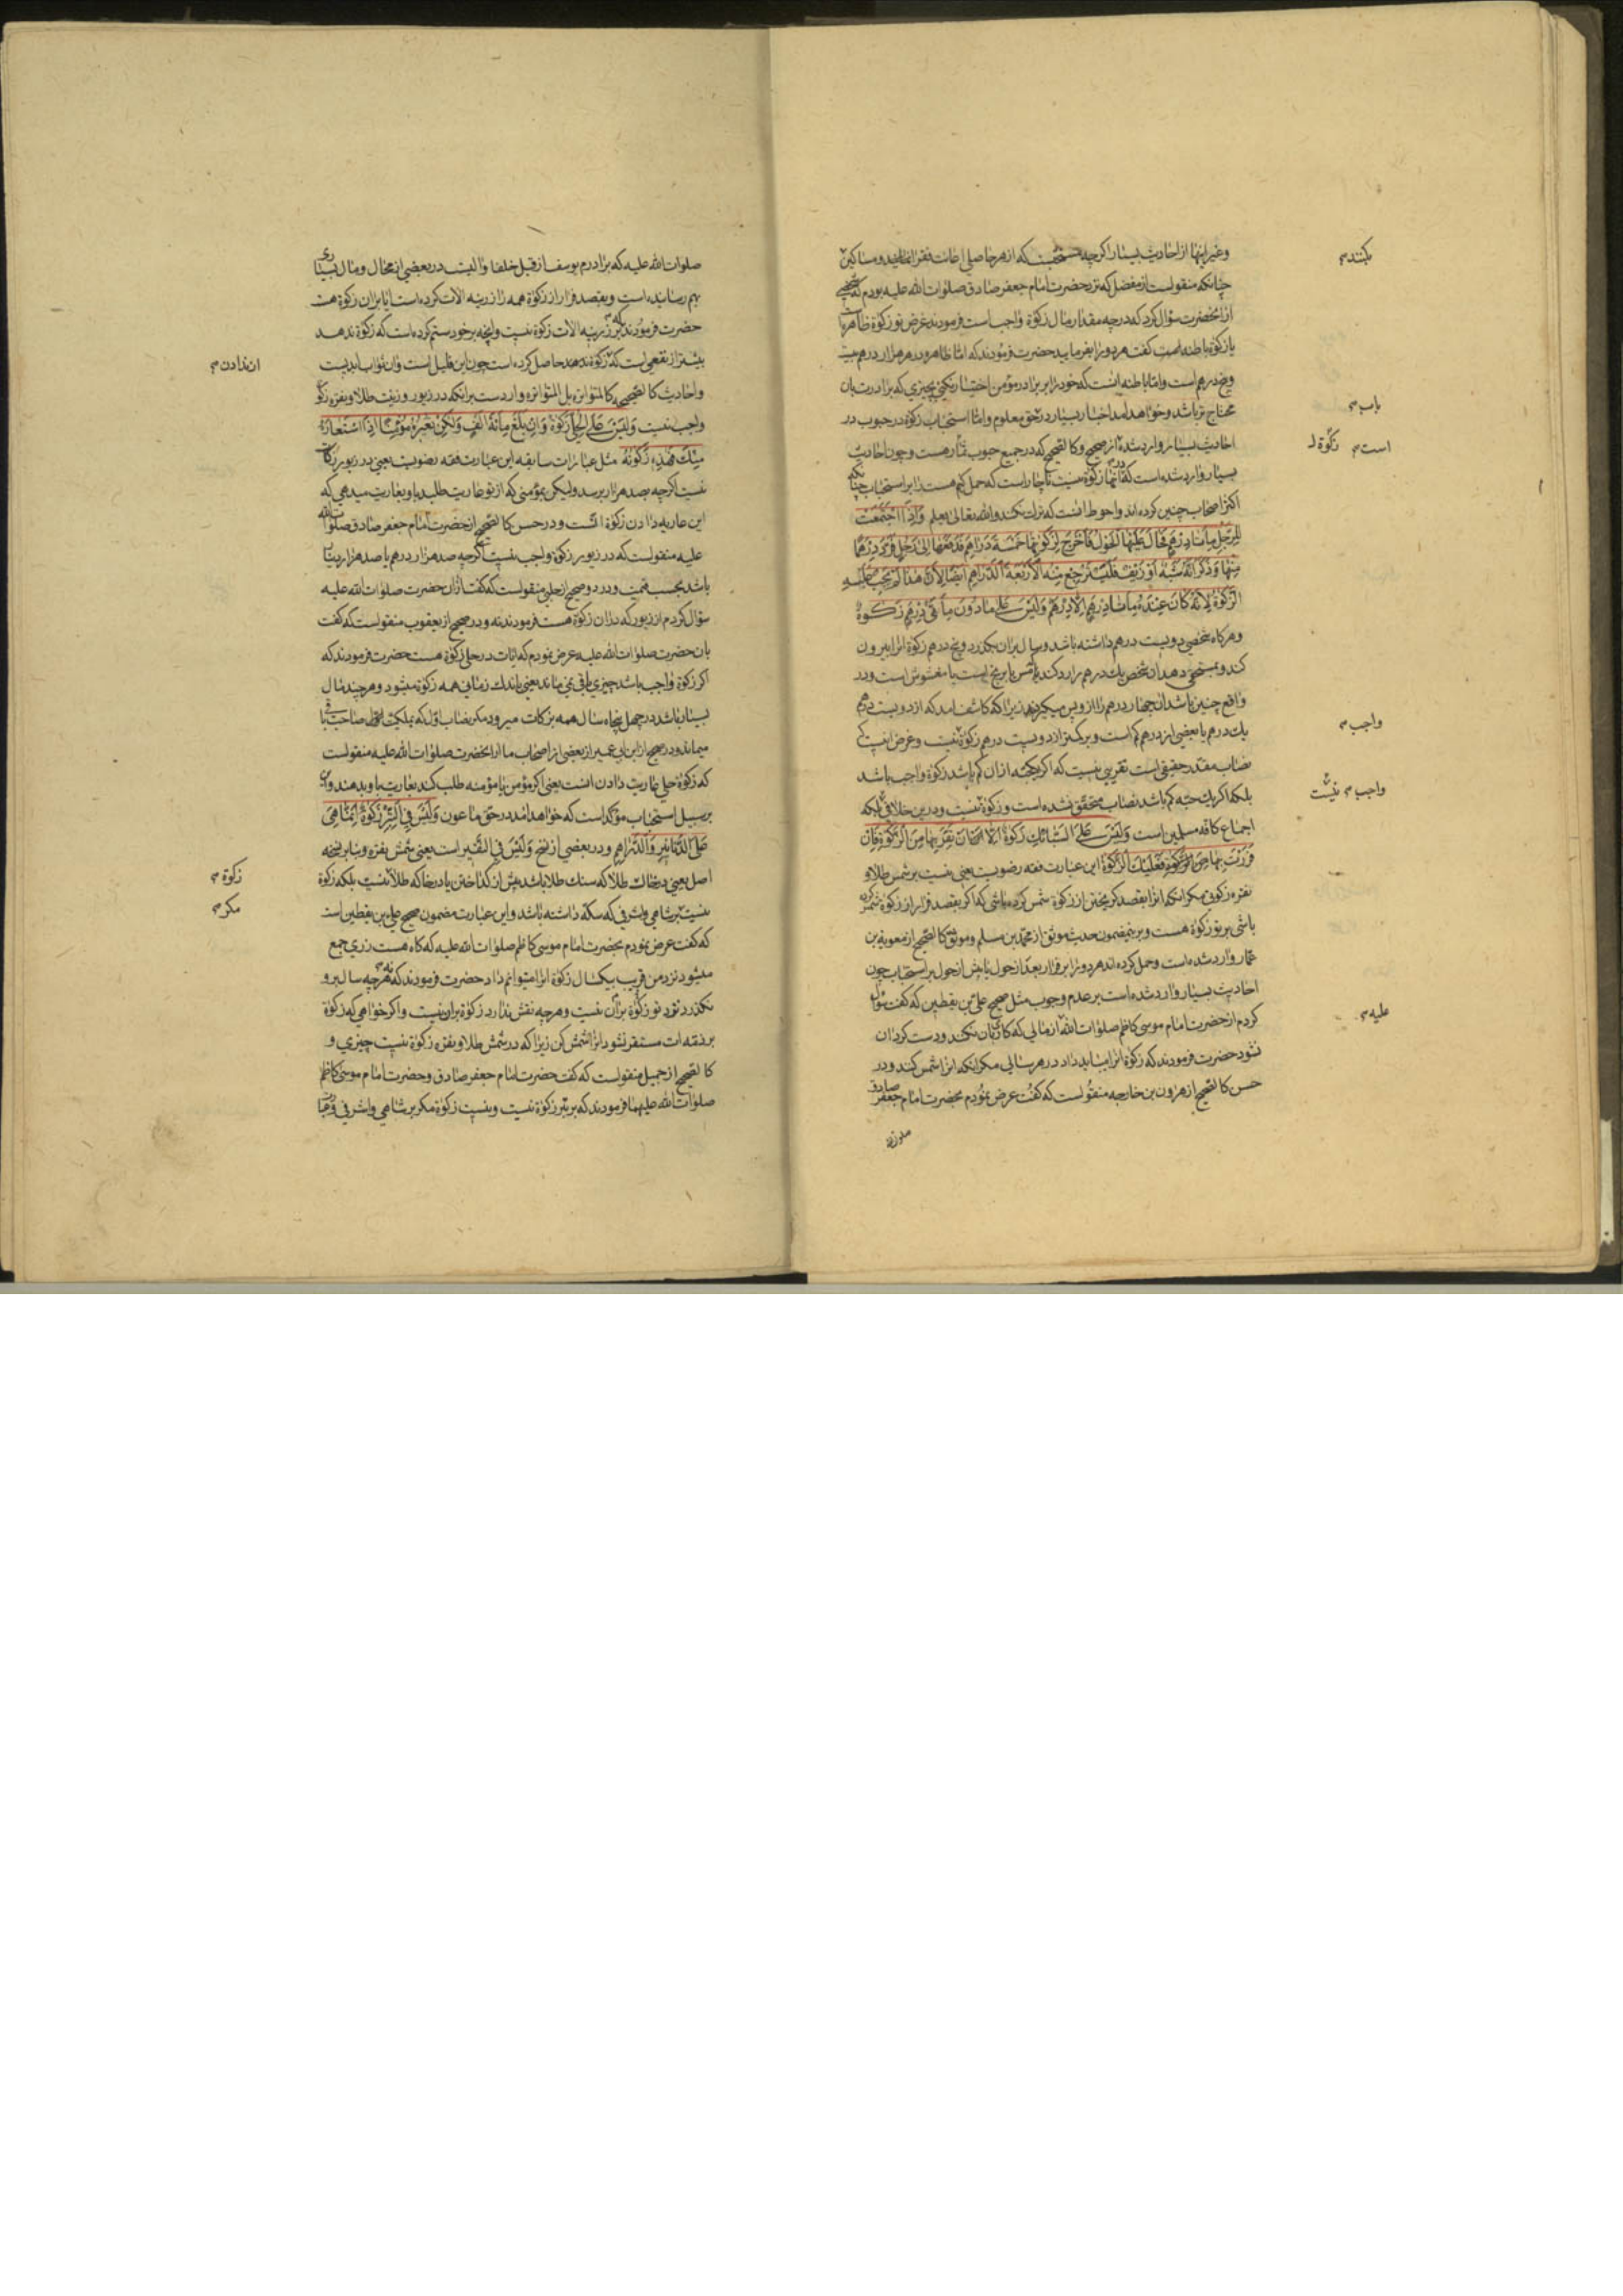 وغیر اینها از احادیث بسیار اگرچه مستحبست که از هر حاصلی اعانت فقرا نمایند و مساکین
چنانکه منقولست از مفضل که نزد حضرت امام جعفر صادق صلوات الله علیه بودم که شخصی
از انحضرت سؤال کرد که در چه مقدار مال زکوة واجب است فرمودند غرض تو زکوة ظاهرست
یا زکوة باطنه است گفت هر دو را بفرمایید حضرت فرمودند که اما ظاهره در هر هزار درهم بیست
وپنج درهم است واما باطنه انست که خود را بر برادر مؤمن اختیار نکنی بچیزی که برادرت بان
محتاج تر باشد وخواهد امد اخبار بسیار در حق معلوم واما استحباب زکوة در حبوب در
احادیث بسیار وارد شده از صحیح وکالصحیح که در جمیع حبوب هست وچون احادیث
بسیار وارد شده است که در انها زکوة نیست ناچار است که حمل کنیم هست را بر استحباب چنانکه
اکثر اصحاب چنین کرده اند واحوط انست که ترک نکنند والله تعالی یعلم وَاِذَا اجْتَمَعَتْ
لِلرَّجُلِ مِائَتَا دِرْهَمٍ فَحَالَ عَلَیْهَا الْحَوْلُ فَاَخْرَجَ لِزَکٰوتِهَا خَمْسَةَ دَرَاهِمَ فَدَفَعَهَا اِلٰی رَجُلٍ فَرَدَّ دِرْهَمًا
مِنْهَا وَذَکَرَ اَنَّهُ شَبَهٌ اَوْ زَیْفٌ فَلْیَسْتَرْجِعْ مِنْهُ الْاَرْبَعَةَ الدَّرَاهِمَ اَیْضًا لِاَنَّ هٰذَا لَمْ تَجِبْ عَلَیْهِ
الزَّکٰوةُ لِاَنَّهُ کَانَ عِنْدَهُ مِائَتَا دِرْهَمٍ اِلَّا دِرْهَمٌ وَلَیْسَ عَلٰی مَا دُونَ مِائَتَیْ دِرْهَمٍ زَکٰوةٌ
وهرکاه شخصی دویست درهم داشته باشد وسال بران بگذرد وپنج درهم زکوة انرا بیرون
کند وبمستحقی دهد ان شخص یک درهم را رد کند یا مس یا برنج است یا مغشوش است ودر
واقع چنین باشد ان چهار درهم را از او پس میکیرد زیرا که کاشف امد که از دویست درهم
یک درهم یا بعضی از درهم کم است وبر کمتر از دویست درهم زکوة نیست وغرض اینست که
نصاب مقدر حقیقی است تقریبی نیست که اکر یکحبه از ان کم باشد زکوة واجب باشد
بلکه اکر یک حبه کم باشد نصاب متحقق نشده است وزکوة نیست ودرین خلافی نیست بلکه
اجماع کافه مسلمین است وَلَیْسَ عَلَی السَّبَائِکِ زَکٰوةٌ اِلَّا اَنْ تَفِرَّ بِهَا مِنَ الزَّکٰوةِ فَاِنْ
فَرَرْتَ بِهَا مِنَ الزَّکٰوةِ فَعَلَیْکَ الزَّکٰوةُ این عبارت فقه رضویست یعنی نیست بر شمس طلا و
نقره زکوتی مکر انکه انرا بقصد کریختن از زکوة شمس کرده باشی که اکر بقصد فرار از زکوة شمس کرده
باشی بر تو زکوة هست وبرینمضمون حدیث موثق از محمد بن مسلم وموثق کالصحیح از معویة بن
عمار وارد شده است وحمل کرده اند هر دو را بر فرار بعد از حول یا پیش از حول بر استحباب چون
احادیث بسیار وارد شده است بر عدم وجوب مثل صحیح علی بن یقطین که گفت سؤال
کردم از حضرت امام موسی کاظم صلوات الله از مالی که کار بان نکنند ودست کردان
نشود حضرت فرمودند که زکوة انرا نمیباید داد در هر سالی مکر انکه انرا شمس کنند ودر
حسن کالصحیح از هرون بن خارجه منقولست که گفت عرض نمودم بحضرت امام جعفر صادق
صلوات
کنند م
باب م
است م زکوة ل
واجب م
واجب م نیست
علیه م
صلوات الله علیه که برادرم یوسف از قبل خلفا والیست در بعضی از محال ومال بسیاری
بهم رسانیده است وبقصد فرار از زکوة همه را زرینه الات کرده است ایا بران زکوة هست
حضرت فرمودند که بر زرینه الات زکوة نیست وانچه بر خود ستم کرده است که زکوة ندهد
بیشتر از نفعی است که زکوة ندهد حاصل کرده است چون این قلیل است وان ثواب ابدیست
واحادیث کالصحیحه کالمتواتره بل المتواتره وارد است بر انکه در زیور وزینت طلا ونقره زکوة
واجب نیست وَلَیْسَ عَلَی الْحُلِیِّ زَکٰوةٌ وَاِنْ بَلَغَ مِائَةَ اَلْفٍ وَلٰکِنْ تُعِیرُهُ مُؤْمِنًا اِذَا اسْتَعَارَهُ
مِنْکَ فَهٰذِهِ زَکٰوتُهُ مثل عبارات سابقه این عبارت فقه رضویست یعنی در زیور زکوة
نیست اکرچه بصد هزار برسد ولیکن بمؤمنی که از تو عاریت طلبد باو بعاریت میدهی که
این عاریه دادن زکوة انست ودر حسن کالصحیح از حضرت امام جعفر صادق صلوات الله
علیه منقولست که در زیور زکوة واجب نیست اکرچه صد هزار درهم یا صد هزار دینار
باشد بحسب قیمت ودر دو صحیح از حلبی منقولست که گفت از ان حضرت صلوات الله علیه
سؤال کردم از زیور که در ان زکوة هست فرمودند نه ودر صحیح از یعقوب منقولست که گفت
بان حضرت صلوات الله علیه عرض نمودم که ایا در حلی زکوة هست حضرت فرمودند که
اکر زکوة واجب باشد چیزی باقی نمی ماند یعنی باندک زمانی همه زکوة میشود وهر چند مال
بسیار باشد در چهل پنجاه سال همه بزکات میرود مکر نصاب اول که بملکیت صاحب باقی
میماند ودر صحیح از ابن ابی عمیر از بعضی از اصحاب ما از انحضرت صلوات الله علیه منقولست
که زکوة حلی عاریت دادن انست یعنی اکر مؤمن یا مؤمنه طلب کند بعاریت باو بدهند واین
بر سبیل استحباب مؤکد است که خواهد امد در حق ماعون وَلَیْسَ فِی التِّبْرِ زَکٰوةٌ اِنَّمَا هِیَ
عَلَی الدَّنَانِیرِ وَالدَّرَاهِمِ ودر بعضی از نسخ وَلَیْسَ فِی النَّقِیرِ است یعنی شمش نقره وبنابر نسخه
اصل یعنی در خاک طلا که سنک طلا باشد پیش از کداختن یا در خاکه طلا نیست بلکه زکوة
نیست بر شاهی واشرفی که سکه داشته باشد واین عبارت مضمون صحیح علی بن یقطین است
که گفت عرض نمودم بحضرت امام موسی کاظم صلوات الله علیه که کاه هست زری جمع
میشود نزد من قریب بیکسال زکوة انرا میتوانم داد حضرت فرمودند که نه هرچه سال برو
نکذرد نزد تو زکوة بران نیست وهرچه نقش ندارد زکوة بران نیست واکر خواهی که زکوة
بر ذمه ات مستقر نشود انرا شمش کن زیرا که در شمش طلا ونقره زکوة نیست چیزی و
کالصحیح از جمیل منقولست که گفت حضرت امام جعفر صادق وحضرت امام موسی کاظم
صلوات الله علیهما فرمودند که بر تبر زکوة نیست ونیست زکوة مکر بر شاهی واشرفی
ان ندادن م
زکوة م
مکر م